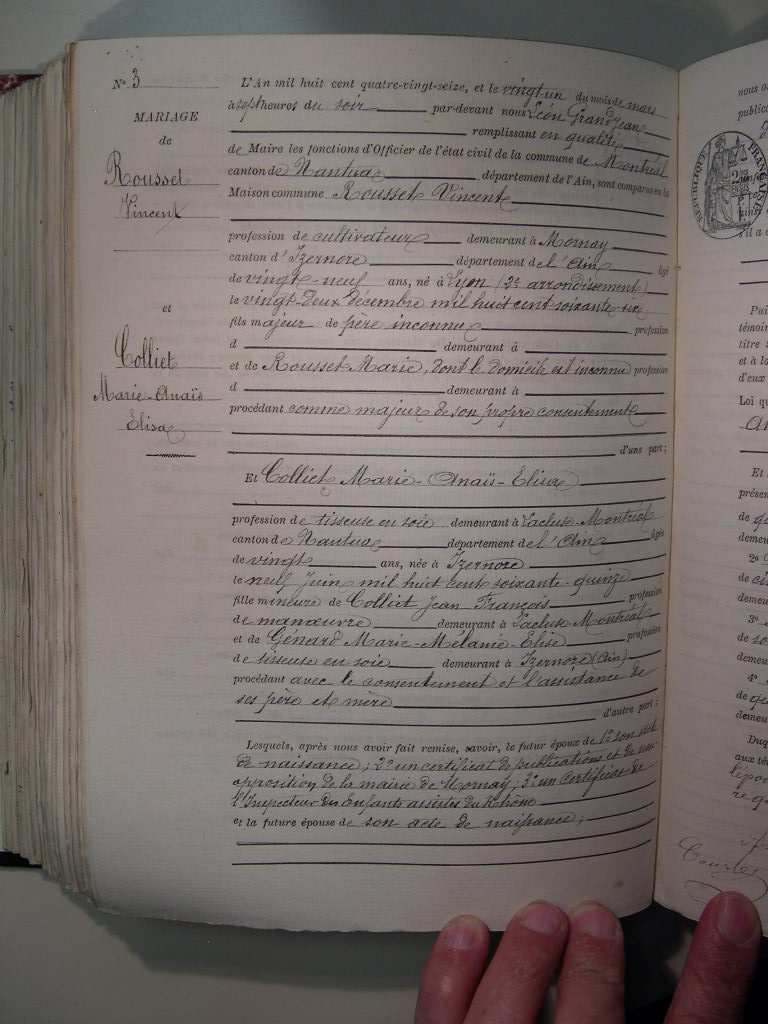 N° 3
MARIAGE
de
Rousset
Vincent
et
Colliet
Marie-Anaïs
Élisa
L'An mil huit cent quatre-vingt-seize, et le vingt-un du mois de mars
à sept heures du soir par-devant nous Léon Grandjean
remplissant en qualité
de Maire les fonctions d'Officier de l'état civil de la commune de Montréal
canton de Nantua département de l'Ain, sont comparus en la
Maison commune Rousset Vincent
profession de cultivateur demeurant à Mornay
canton d'Izernore département de l'Ain âgé
de vingt-neuf ans, né à Lyon (2e arrondissement)
le vingt-deux décembre mil huit cent soixante-six
fils majeur de père inconnu profession
d demeurant à
et de Rousset Marie, dont le domicile est inconnu profession
d demeurant à
procédant comme majeur de son propre consentement
d'une part;
Et Colliet Marie-Anaïs-Élisa
profession de tisseuse en soie demeurant à Lacluse-Montréal
canton de Nantua département de l'Ain âgée
de vingt ans, née à Izernore
le neuf juin mil huit cent soixante-quinze
fille mineure de Colliet Jean François profession
de manœuvre demeurant à Lacluse Montréal
et de Génard Marie-Mélanie-Élise profession
de tisseuse en soie demeurant à Izernore (Ain)
procédant avec le consentement et l'assistance de
ses père et mère
d'autre part;
Lesquels, après nous avoir fait remise, savoir, le futur époux de 1° son acte
de naissance; 2° un certificat de publications et de non
opposition de la mairie de Mornay; 3° un certificat de
l'Inspecteur des Enfants assistés du Rhône
et la future épouse de son acte de naissance;
nous o
public
RÉPUBLIQUE FRANÇAISE
il a
Pui
témoin
titre
et à lo
d'eux
Loi qu
Et
présen
de
demeu
2°
de
demeu
3°
de
demeu
4°
de
demeu
Duq
aux té